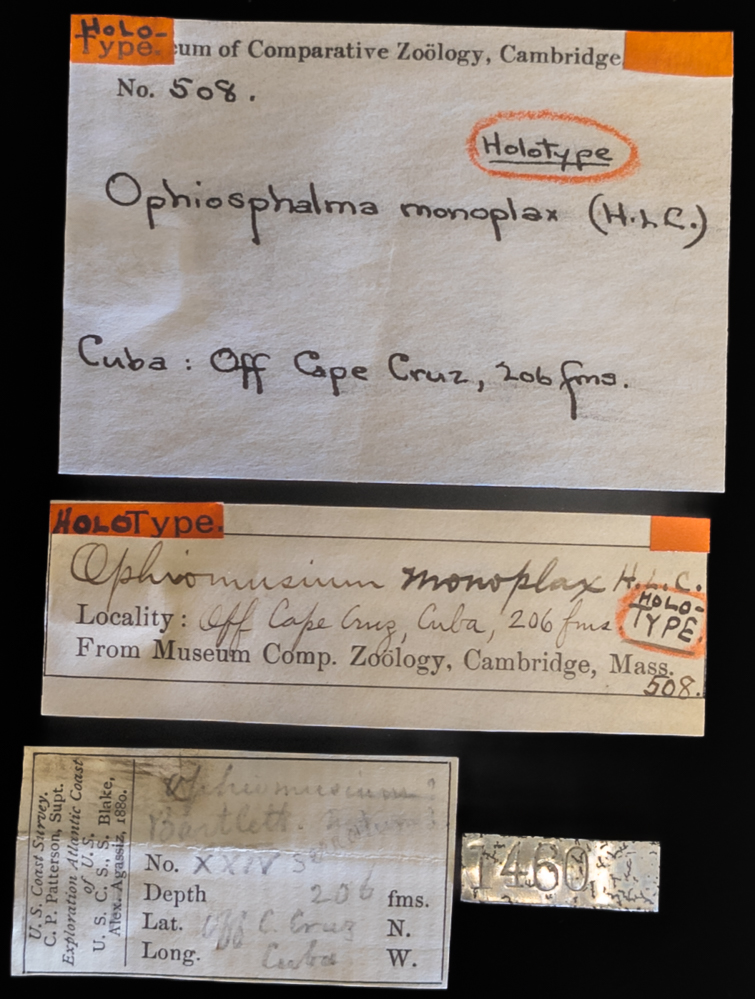 HOLO-
Type.
eum of Comparative Zoölogy, Cambridge
No. 508.
Holotype
Ophiosphalma monoplax (H.L.C.)
Cuba : Off Cape Cruz, 206 fms.
HOLOType.
Ophiomusium monoplax H.L.C.
Locality : Off Cape Cruz, Cuba, 206 fms
HOLO-
TYPE.
From Museum Comp. Zoölogy, Cambridge, Mass.
508.
U. S. Coast Survey.
C. P. Patterson, Supt.
Exploration Atlantic Coast
of U. S.
U. S. C. S., S. Blake,
Alex. Agassiz, 1880.
Ophiomusium?
Bartlett.
No. XXIV
Depth 206 fms.
Lat. Off C. Cruz N.
Long. Cuba W.
1460